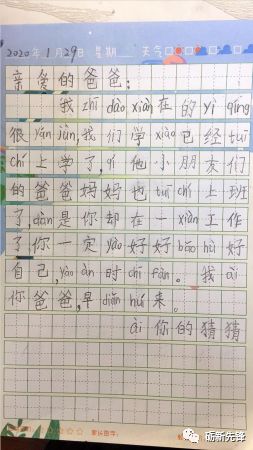 2020年1月29日 星期 天气
亲爱的爸爸:
我zhī dào xiàn在的yì qíng
很yán jùn,我们学xiào已经tuī
chí上学了,qí他小朋友们
的爸爸妈妈也tuī chí上班
了,dàn是你却在一xiàn工作
了你一定yào好好bǎo hù好
自己,yào àn时chī fàn。我ài
你爸爸,早diǎn huí来。
ài你的猜猜
家长签字:
砺新先锋